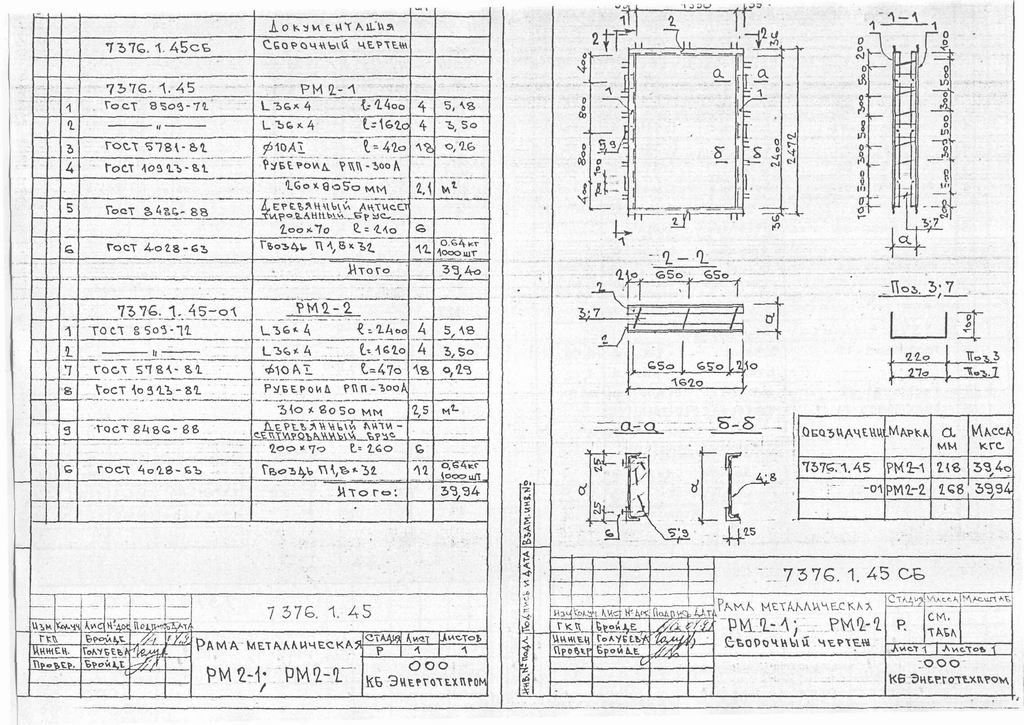 ДОКУМЕНТАЦИЯ
7376.1.45СБ СБОРОЧНЫЙ ЧЕРТЕЖ
7376.1.45 РМ2-1
1 ГОСТ 8509-72 L36×4 ℓ=2400 4 5,18
2 —"— L36×4 ℓ=1620 4 3,50
3 ГОСТ 5781-82 ϕ10АI ℓ=420 18 0,26
4 ГОСТ 10923-82 РУБЕРОИД РПП-300А
260×8050 ММ 2,1 М²
5 ГОСТ 8486-88 ДЕРЕВЯННЫЙ АНТИСЕП
ТИРОВАННЫЙ БРУС
200×70 ℓ=210 6
6 ГОСТ 4028-63 ГВОЗДЬ П1,8×32 12 0,64КГ
1000ШТ
ИТОГО 39,40
7376.1.45-01 РМ2-2
1 ГОСТ 8509-72 L36×4 ℓ=2400 4 5,18
2 —"— L36×4 ℓ=1620 4 3,50
7 ГОСТ 5781-82 ϕ10АI ℓ=470 18 0,29
8 ГОСТ 10923-82 РУБЕРОИД РПП-300А
310×8050 ММ 2,5 М²
9 ГОСТ 8486-88 ДЕРЕВЯННЫЙ АНТИ-
СЕПТИРОВАННЫЙ БРУС
200×70 ℓ=260 6
6 ГОСТ 4028-63 ГВОЗДЬ П1,8×32 12 0,64КГ
1000ШТ
ИТОГО: 39,94
7376.1.45
ИЗМ КОЛУЧ ЛИСТ №ДОК ПОДПИСЬ ДАТА
ГКП БРОЙДЕ
ИНЖЕН. ГОЛУБЕВА
ПРОВЕР. БРОЙДЕ
РАМА МЕТАЛЛИЧЕСКАЯ
РМ2-1; РМ2-2
СТАДИЯ ЛИСТ ЛИСТОВ
Р 1 1
ООО
КБ ЭНЕРГОТЕХПРОМ
1 2 2 36
400 800 800 400
100 100
1 а а 1
5;9 б б
2400 2472
1 2 36
1 1-1 1
200 500 300 500 300 500 100
100 500 300 500 300 500 200
100 500 300 500 300 500 200
а 3;7
2-2
210 650 650
2
3;7
2
а
650 650 210
1620
Поз. 3;7
100
220 Поз.3
270 Поз.7
а-а б-б
25 а 25
6 5;9
а 4;8
25
ОБОЗНАЧЕНИЕ МАРКА а ММ МАССА КГС
7376.1.45 РМ2-1 218 39,40
-01 РМ2-2 268 39,94
ИНВ.№ПОДЛ. ПОДПИСЬ И ДАТА ВЗАМ.ИНВ.№
7376.1.45 СБ
ИЗМ КОЛУЧ ЛИСТ №ДОК ПОДПИСЬ ДАТА
ГКП БРОЙДЕ
ИНЖЕН ГОЛУБЕВА
ПРОВЕР БРОЙДЕ
РАМА МЕТАЛЛИЧЕСКАЯ
РМ2-1; РМ2-2
СБОРОЧНЫЙ ЧЕРТЕЖ
СТАДИЯ МАССА МАСШТАБ
Р. СМ. ТАБЛ
ЛИСТ 1 ЛИСТОВ 1
ООО
КБ ЭНЕРГОТЕХПРОМ